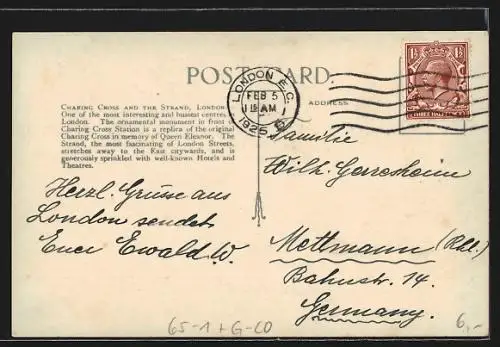 POST CARD.
LONDON E.C.
FEB 5
11 15 AM
1925
1½ 1½
THREE HALFPENCE
CHARING CROSS AND THE STRAND, LONDON
One of the most interesting and busiest centres
London. The ornamental monument in front o
Charing Cross Station is a replica of the original
Charing Cross in memory of Queen Eleanor. The
Strand, the most fascinating of London Streets,
stretches away to the East citywards, and is
generously sprinkled with well-known Hotels and
Theatres.
ADDRESS
Herzl. Grüsse aus
London sendet
Euer Ewald W.
Familie
Wilh. Gerresheim
Mettmann (Rhl.)
Bahnstr. 14.
Germany.
65-1+G-CO
6,-